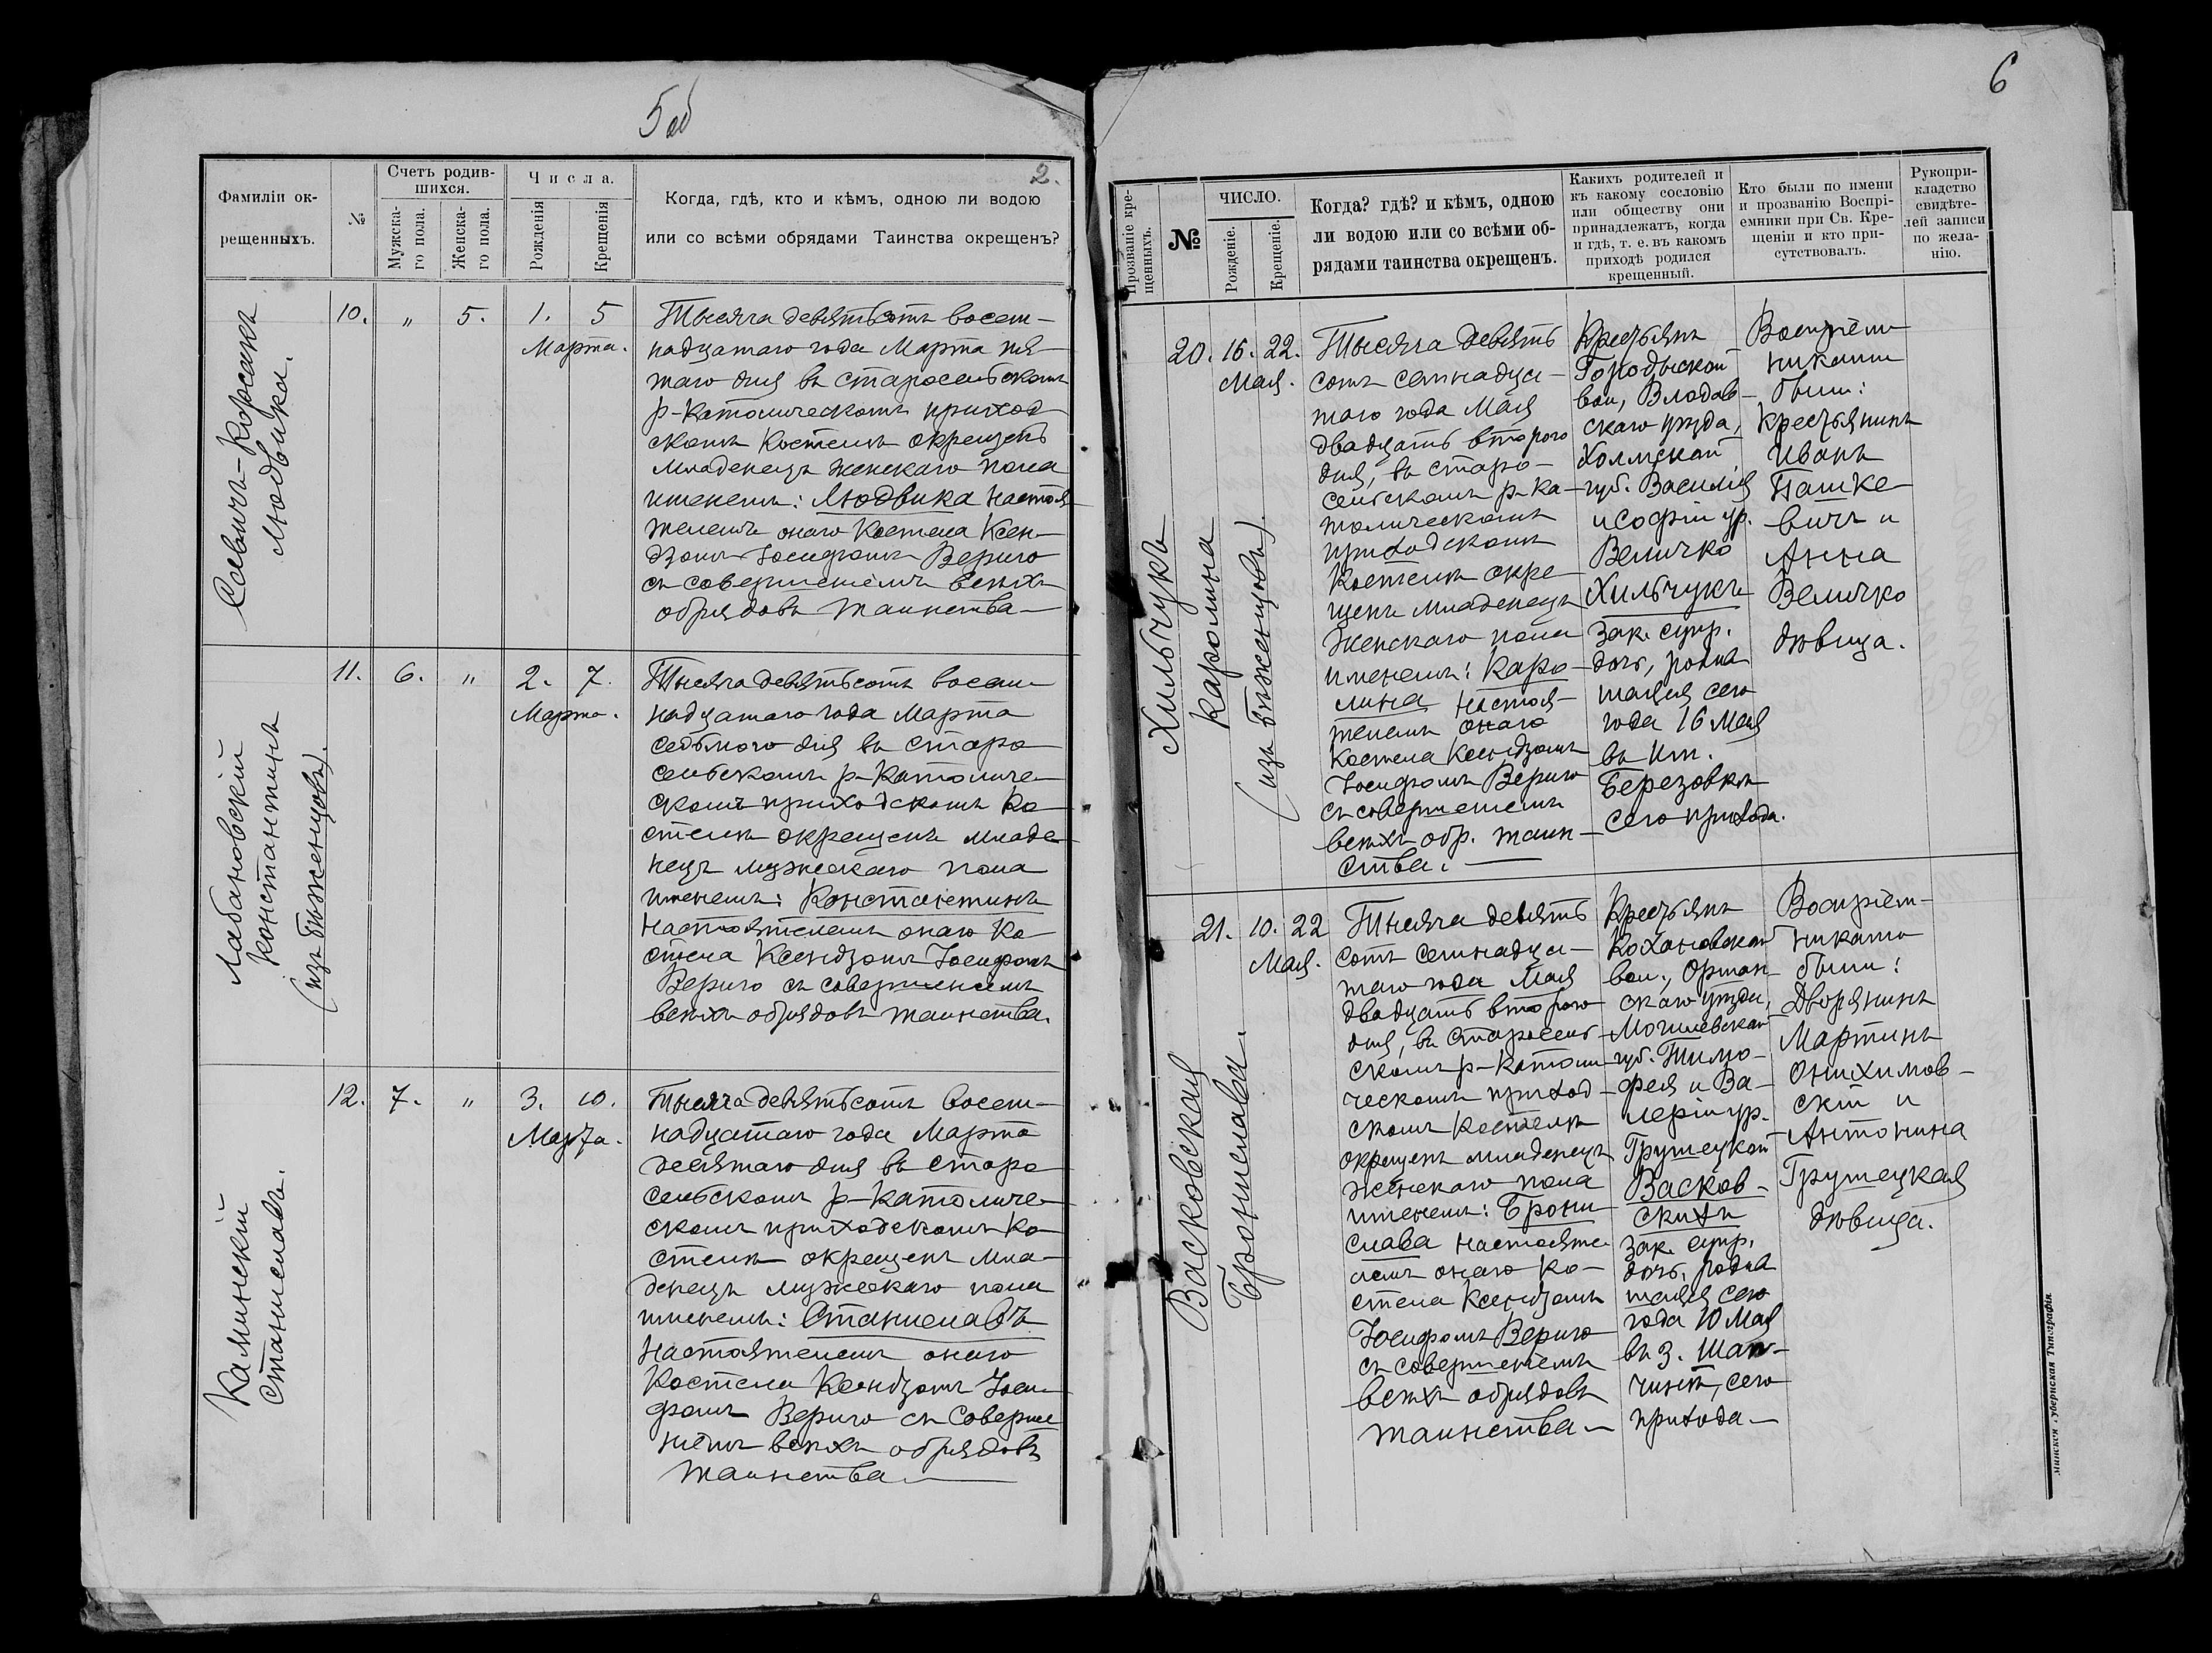 5 об
2.
Фамиліи ок-
рещенныхъ.
№
Счетъ родив-
шихся.
Мужска-
го пола.
Женска-
го пола.
Числа.
Рожденія
Крещенія
Когда, гдѣ, кто и кѣмъ, одною ли водою
или со всѣми обрядами Таинства окрещенъ?
Савичъ-Корсакъ
Людвика.
10. " 5. 1. 5
Марта.
Тысяча девятьсотъ восем-
надцатаго года Марта пя-
таго дня въ старосельскомъ
р-католическомъ приход-
скомъ Костелѣ окрещенъ
младенецъ женскаго пола
именемъ: Людвика настоя-
телемъ онаго Костела Ксен-
дзомъ Іосифомъ Вериго
съ совершеніемъ всѣхъ
обрядовъ таинства
Лабановскій
Константинъ
(изъ бѣженцовъ).
11. 6. " 2. 7.
Марта.
Тысяча девятьсотъ восем-
надцатаго года Марта
седьмого дня въ старо
сельскомъ р-католиче-
скомъ приходскомъ Ко-
стелѣ окрещенъ младе-
нецъ мужескаго пола
именемъ: Константинъ
настоятелемъ онаго Ко-
стела Ксендзомъ Іосифомъ
Вериго съ совершеніемъ
всѣхъ обрядовъ таинства.
Каминскій
Станиславъ.
12. 7. " 3. 10.
Марта.
Тысяча девятьсотъ восем-
надцатаго года Марта
десятаго дня въ старо
сельскомъ р-католиче-
скомъ приходскомъ Ко-
стелѣ окрещенъ мла-
денецъ мужескаго пола
именемъ: Станиславъ
настоятелемъ онаго
Костела Ксендзомъ Іоси-
фомъ Вериго съ соверше
ніемъ всѣхъ обрядовъ
таинства
6
Прозваніе кре-
щенныхъ.
№
ЧИСЛО.
Рожденіе.
Крещеніе.
Когда? гдѣ? и кѣмъ, одною
ли водою или со всѣми об-
рядами таинства окрещенъ.
Какихъ родителей и
къ какому сословію
или обществу они
принадлежатъ, когда
и гдѣ, т. е. въ какомъ
приходѣ родился
крещенный.
Кто были по имени
и прозванію Воспрі-
емники при Св. Кре-
щеніи и кто при-
сутствовалъ.
Рукопри-
кладство
свидѣте-
лей записи
по жела-
нію.
Хильчукъ
Каролина
(изъ бѣженцовъ).
20. 16. 22.
Мая.
Тысяча девять
сотъ семнадца-
таго года Мая
двадцать второго
дня, въ старо-
сельскомъ р-ка-
толическомъ
приходскомъ
Костелѣ окре-
щенъ младенецъ
женскаго пола
именемъ: Каро-
лина настоя-
телемъ онаго
Костела Ксендзомъ
Іосифомъ Вериго
съ совершеніемъ
всѣхъ обр. таин-
ства.
Крестьянъ
Городыской
вол., Владав-
скаго уѣзда,
Холмской
губ. Василія
и Софіи ур.
Величко
Хильчукъ
зак. супр.
дочь, родив
шаяся сего
года 16 Мая
въ им.
Березовкѣ
сего прихода.
Воспріем-
никами
были:
крестьянинъ
Иванъ
Пашке-
вичъ и
Анна
Величко
дѣвица.
Васковская
Бронислава.
21. 10. 22
Мая.
Тысяча девять
сотъ семнадца-
таго года Мая
двадцать второго
дня, въ старосель-
скомъ р-католи-
ческомъ приход-
скомъ Костелѣ
окрещенъ младенецъ
женскаго пола
именемъ: Брони
слава настояте-
лемъ онаго Ко-
стела Ксендзомъ
Іосифомъ Вериго
съ совершеніемъ
всѣхъ обрядовъ
таинства
Крестьянъ
Кохановской
вол., Оршан-
скаго уѣзда,
Могилевской
губ. Тимо-
фея и Ва-
леріи ур.
Грушецкой
Васков-
скихъ
зак. супр.
дочь, родив
шаяся сего
года 10 Мая
въ з. Шап-
чинѣ, сего
прихода
Воспріем-
никами
были:
Дворянинъ
Мартинъ
Онихимов-
скій и
Антонина
Грушецкая
дѣвица.
Минская Губернская Типографія